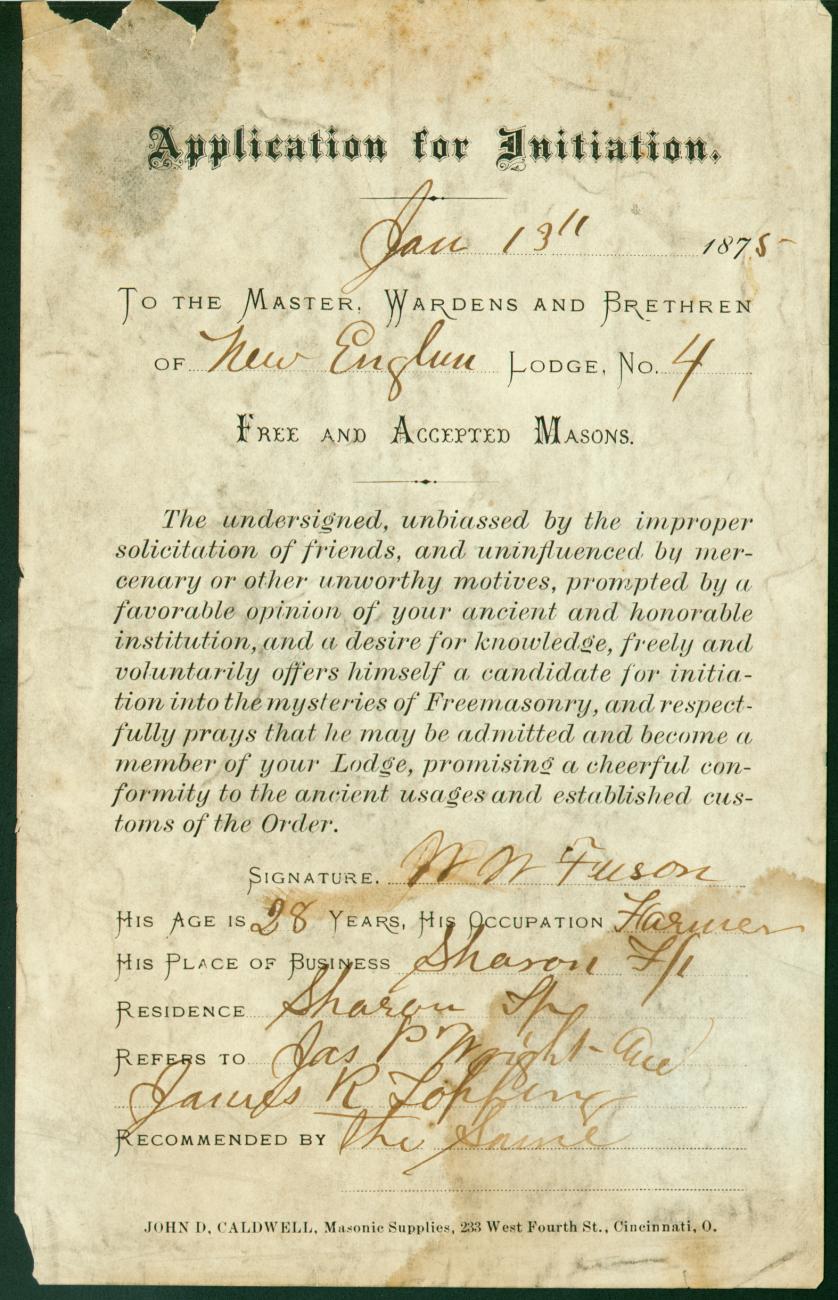 Application for Initiation.
Jan 13" 1875
TO THE MASTER, WARDENS AND BRETHREN
OF New Englan LODGE, No. 4
FREE AND ACCEPTED MASONS.
The undersigned, unbiassed by the improper
solicitation of friends, and uninfluenced by mer-
cenary or other unworthy motives, prompted by a
favorable opinion of your ancient and honorable
institution, and a desire for knowledge, freely and
voluntarily offers himself a candidate for initia-
tion into the mysteries of Freemasonry, and respect-
fully prays that he may be admitted and become a
member of your Lodge, promising a cheerful con-
formity to the ancient usages and established cus-
toms of the Order.
SIGNATURE. W W Fuson
HIS AGE IS 28 YEARS, HIS OCCUPATION Farmer
HIS PLACE OF BUSINESS Sharon
RESIDENCE Sharon
REFERS TO Jas P Wright and
James R Topping
RECOMMENDED BY the Same
JOHN D. CALDWELL, Masonic Supplies, 233 West Fourth St., Cincinnati, O.